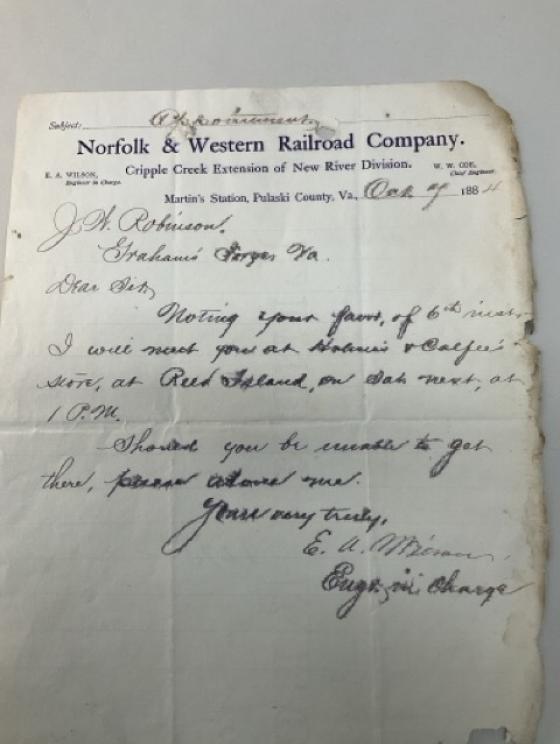 Subject: Appointment
Norfolk & Western Railroad Company.
E. A. WILSON, Engineer in Charge.
Cripple Creek Extension of New River Division.
W. W. COE, Chief Engineer.
Martin's Station, Pulaski County, Va., Oct 7 1884
J. W. Robinson.
Graham's Forges Va.
Dear Sir,
Noting your favor, of 6th inst,
I will meet you at & Calfee's
store, at Reed Island, on Sat next, at
1 P.M.
Should you be unable to get
there, please advise me.
Yours very truly,
E. A. Wilson
Engr. in Charge